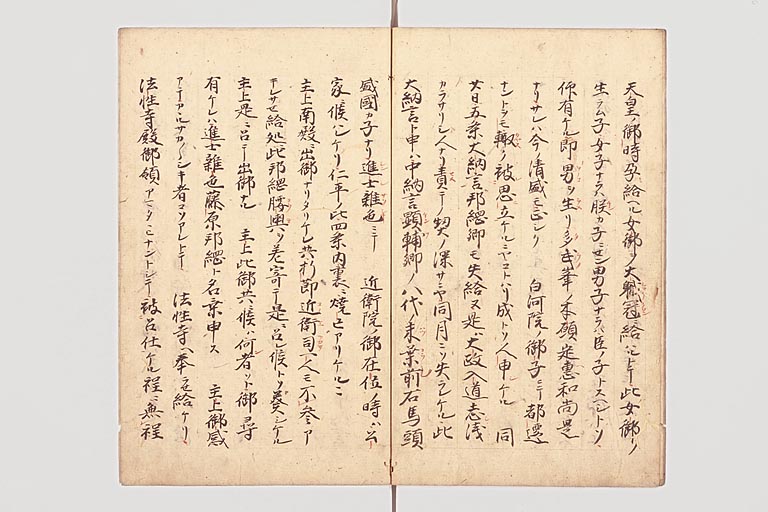 天皇ノ御時孕給ヘル女御ヲ大職冠給ハルトテ此女御ノ
生ラム子女子ナラハ朕カ子ニセン男子ナラハ臣ノ子トスヘシトソ
仰有ケル即男ヲ生リ多武峯ノ本願定恵和尚是
ナリサレハ今ノ清盛モ正シク 白河院ノ御子ニテ都遷
ナントヲモ輙ク被思立ケルニヤコトハリ成トソ人申ケル 同
廿日五条大納言邦綱卿モ失給ヌ是ハ大政入道志浅
カラサリシ人ナリ責テノ契ノ深サニヤ同月ニソ失ラレケル此
大納言ト申ハ中納言顕輔卿ノ八代末葉前右馬頭
盛国カ子ナリ進士雑色ニテ 近衛院ノ御在位ノ時ハ公
家ニ候ハレケリ仁平ノ比四条内裏ニ焼亡アリケルニ
主上南殿ニ出御ナリタリケレ共折節近衛司一人モ不参ア
キレサセ給処ニ此邦綱腰輿ヲ差寄テ是ニ召レ候ヘトソ奏シケル
主上是ニ召テ出御ナル 主上此御共ニ候ハ何者ソト御尋
有ケレハ進士雑色藤原邦綱ト名乗申ス 主上御感
アテアルサカ〳〵シキ者コソアレトテ 法性寺ヘ奉せ給ケリ
法性寺殿御領アマタミナントシテ被召仕ケル程ニ無程